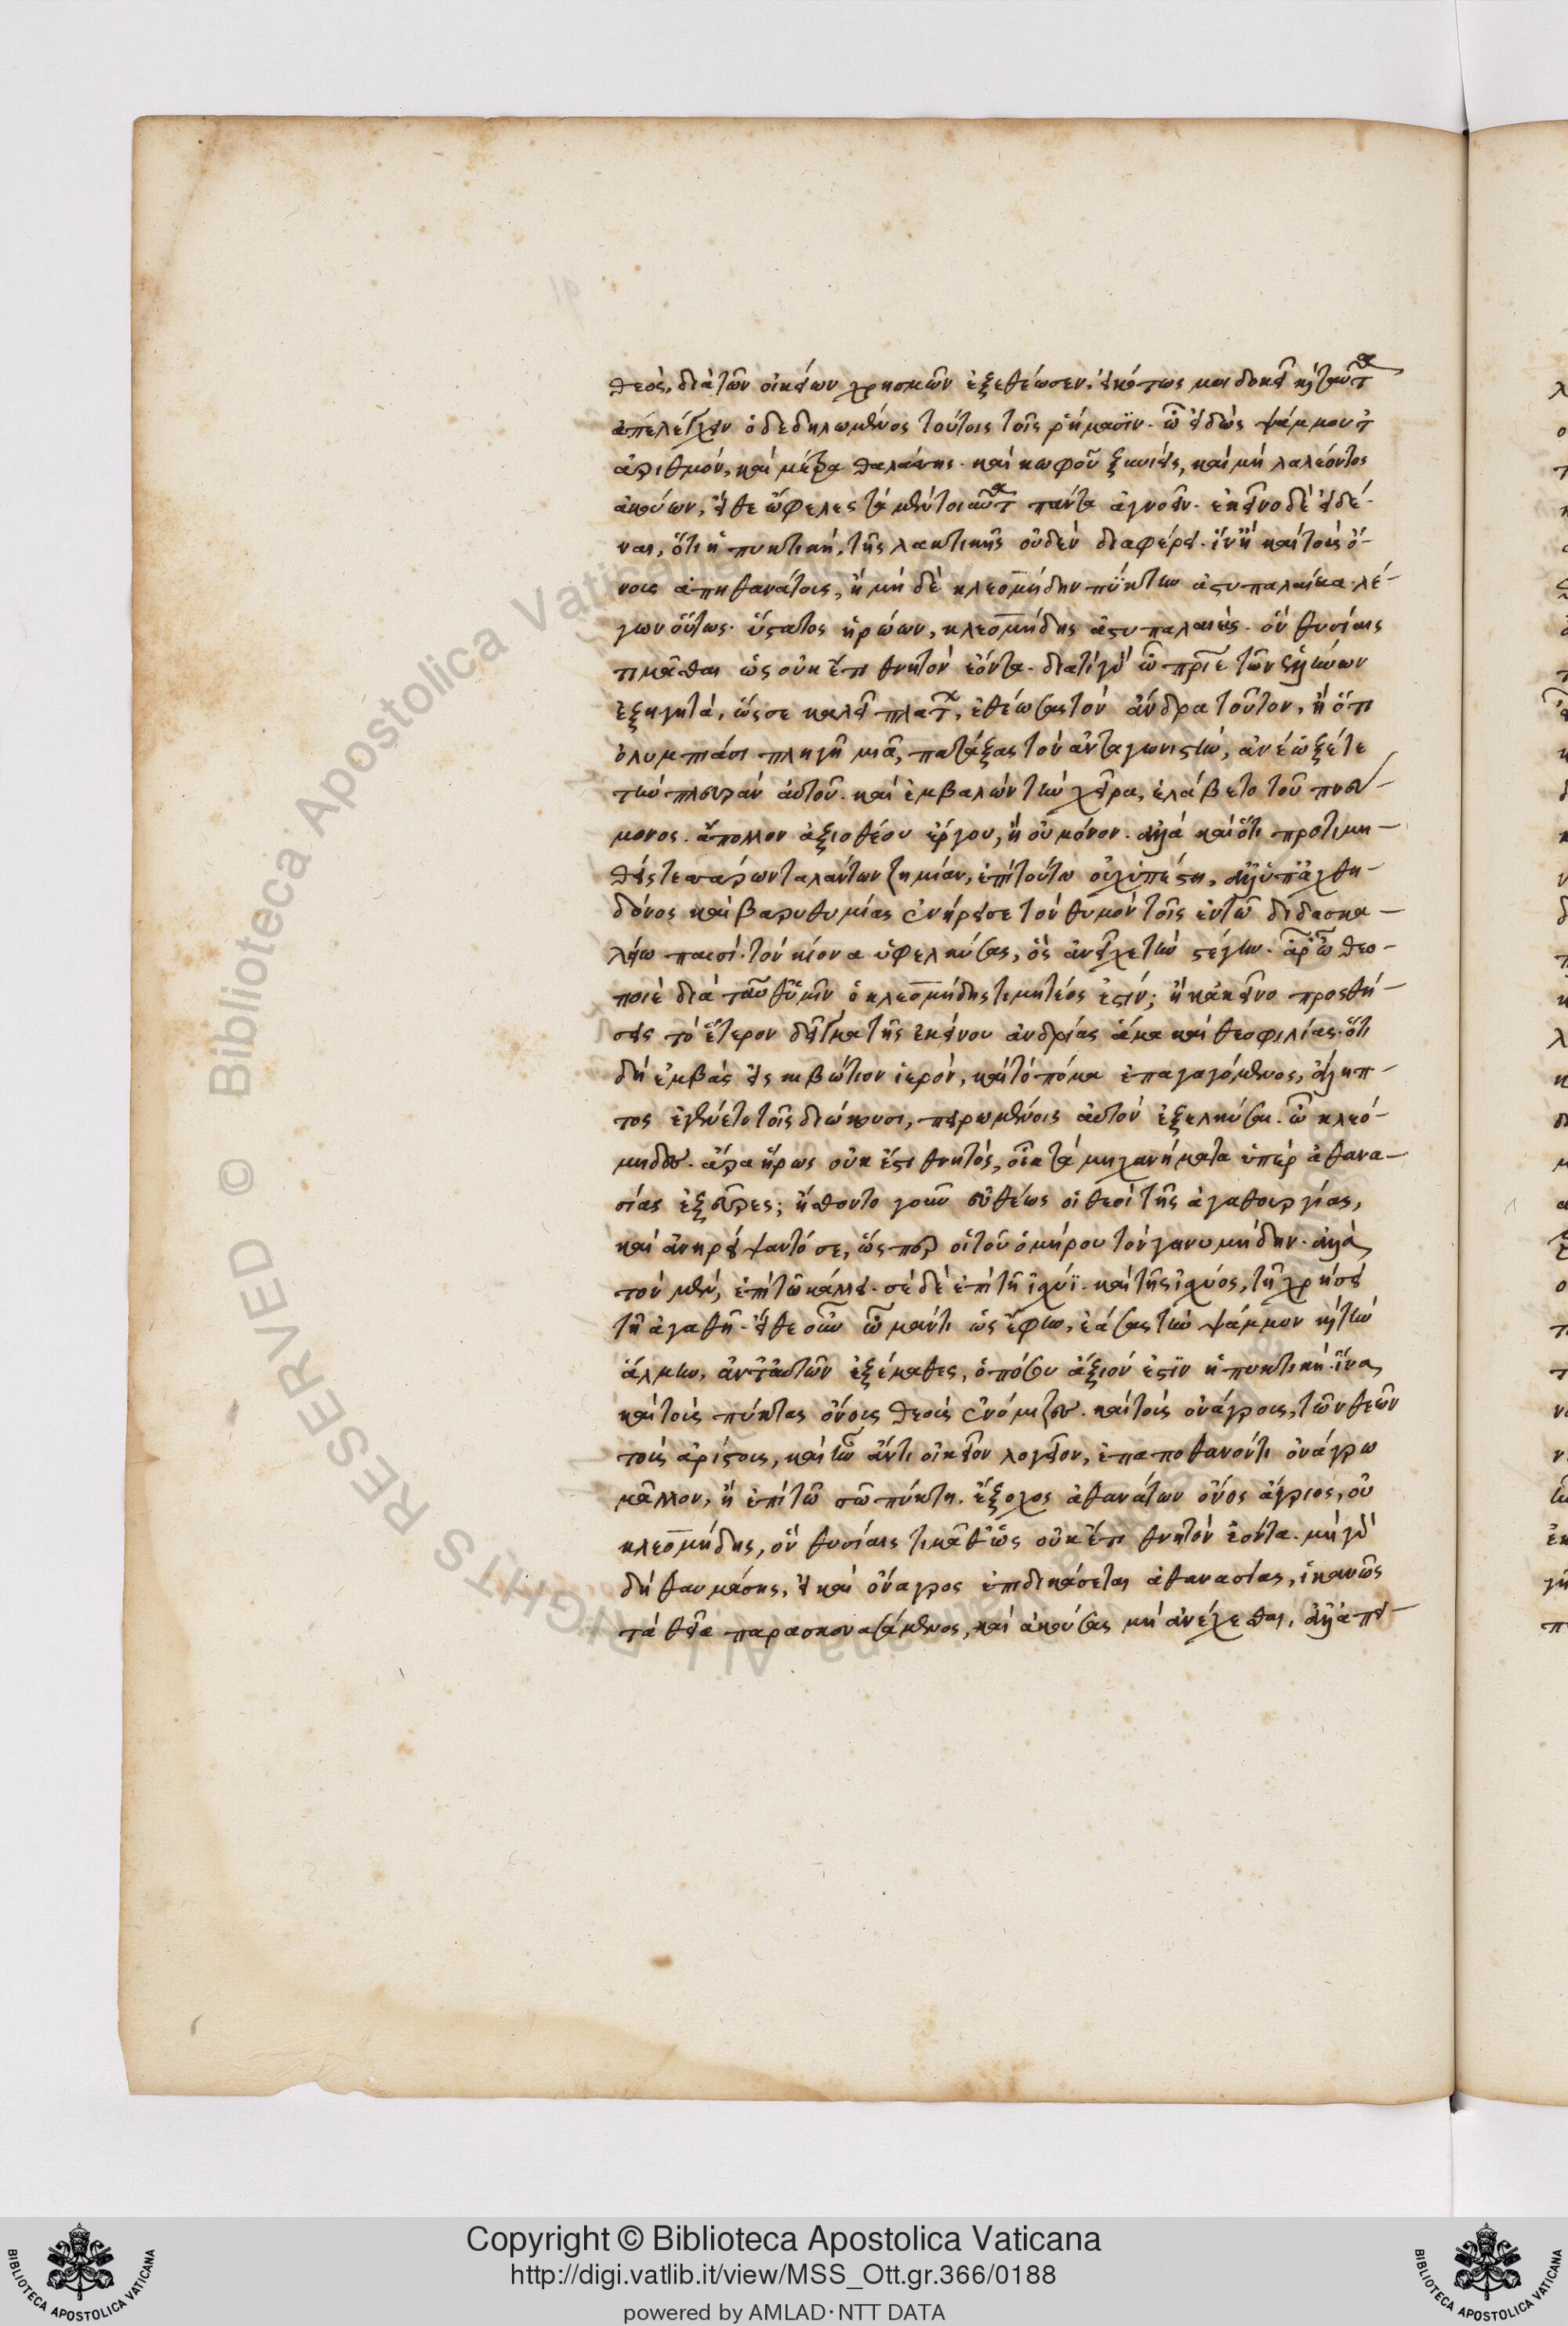 θεός, διὰ τῶν οἰκείων χρησμῶν ἐξεθέωσεν. εἰκότως μοι δοκεῖ κ(αὶ) ταῦτα
ἀπελέγχειν ὁ δεδηλωμένος τούτοις τοῖς ῥήμασιν. ὦ εἰδὼς ψάμμου τ
ἀριθμόν, καὶ μέτρα θαλάσσης. καὶ κωφοῦ ξυνιείς, καὶ μὴ λαλέοντος
ἀκούων, εἴθε ὤφελες τὰ μὲν τοιαῦτα πάντα ἀγνοεῖν. ἐκεῖνο δὲ εἰδέ-
ναι, ὅτι ἡ πυκτικὴ, τῆς λακτικῆς οὐδὲν διαφέρει. ἵν' ἢ καὶ τοὺς ὄ-
νους ἀπηθανάτοις, ἢ μὴ δὲ κλεομήδην πύκτην ἀστυπαλαιέα. λέ-
γων οὕτως. ὕστατος ἡρώων, κλεομήδης ἀστυπαλαιεύς. ὃν θυσίαις
τιμᾶσθαι ὡς οὐκ ἔτι θνητὸν ἐόντα. διατί γὰρ ὦ πάτριε τῶν ἑλλήνων
ἐξηγητά, ὥς σε καλεῖ πλάτων, ἐθέωσας τὸν ἄνδρα τοῦτον, ἢ ὅτι
ὀλυμπιάσι πληγῇ μιᾷ, πατάξας τὸν ἀνταγωνιστὴν, ἀνέῳξέ τε
τὴν πλευρὰν αὐτοῦ. καὶ ἐμβαλὼν τὴν χεῖρα, ἐλάβετο τοῦ πνεύ-
μονος. ἄπολλον ἀξιοθέου ἔργου, ἢ οὐ μόνον. ἀλλὰ καὶ ὅτι προτιμη-
θεὶς τεσσάρων ταλάντων ζημίαν, ἐπὶ τούτῳ οὐχ ὑπέστη, ἀλλ' ὑπ' ἀχθη-
δόνος καὶ βαρυθυμίας ἐνήρεισε τὸν θυμὸν τοῖς ἐν τῷ διδασκα-
λείῳ παισί. τὸν κίονα ὑφελκύσας, ὃς ἀνεῖχε τὴν στέγην. ἆρ' ὦ θεο-
ποιὲ διὰ ταῦθ' ὑμῖν ὁ κλεομήδης τιμητέος ἐστίν; ἢ κἀκεῖνο προσθή-
σεις τὸ ἕτερον δεῖγμα τῆς ἐκείνου ἀνδρίας ἅμα καὶ θεοφιλίας. ὅτι
δὴ ἐμβὰς εἰς κιβώτιον ἱερόν, καὶ τὸ πόμα ἐπαγαγόμενος, ἄληπ-
τος ἐγένετο τοῖς διώκουσι, πειρωμένοις αὐτὸν ἐξελκύσαι. ὦ κλεό-
μηδες. ἄρα ἥρως οὐκ ἔτι θνητός, οἷα τὰ μηχανήματα ὑπὲρ ἀθανα-
σίας ἐξεῦρες; ᾔσθοντο γοῦν εὐθέως οἱ θεοὶ τῆς ἀγαθουργίας,
καὶ ἀνηρείψαντό σε, ὥσπερ οἱ τοῦ ὁμήρου τὸν γανυμήδην. ἀλλὰ
τὸν μὲν, ἐπὶ τῷ κάλλει. σὲ δὲ ἐπὶ τῇ ἰσχύϊ. καὶ τῆς ἰσχύος, τῇ χρήσει
τῇ ἀγαθῇ. εἴθε οὖν ὦ μάντι ὡς ἔφην, ἐάσας τὴν ψάμμον κ(αὶ) τὴν
ἅλμην, ἀντ' αὐτῶν ἐξέμαθες, ὁπόσου ἄξιόν ἐστιν ἡ πυκτική. ἵνα
καὶ τοὺς πύκτας ὄνους θεοὺς ἐνόμιζες. καὶ τοὺς ὀνάγρους, τῶν θεῶν
τοὺς ἀρίστους, καὶ τῷ ἀντὶ οἰκεῖον λογεῖον, ἐπαποθανόντι ὀνάγρῳ
μᾶλλον, ἢ ἐπὶ τῷ σῷ πύκτῃ. ἔξοχος ἀθανάτων ὄνος ἄγριος, οὐ
κλεομήδης, ὃν θυσίαις τιμᾶθ' ὡς οὐκ ἔτι θνητὸν ἐόντα. μὴ γὰρ
δὴ θαυμάσῃς, εἰ καὶ ὄναγρος ἐπιδικάσεται ἀθανασίας, ἱκανῶς
τὰ θεῖα παρασκευασάμενος, καὶ ἀκούσας μὴ ἀνέχεσθαι, ἀλλὰ πει-
Copyright © Biblioteca Apostolica Vaticana
http://digi.vatlib.it/view/MSS_Ott.gr.366/0188
powered by AMLAD·NTT DATA
BIBLIOTECA APOSTOLICA VATICANA
BIBLIOTECA APOSTOLICA VATICANA